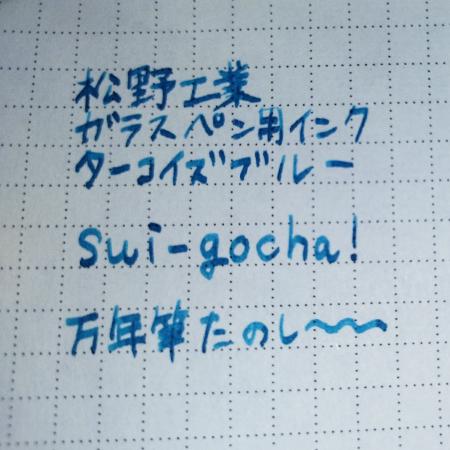 松野工業
ガラスペン用インク
ターコイズブルー
sui-gocha!
万年筆たのし〜〜